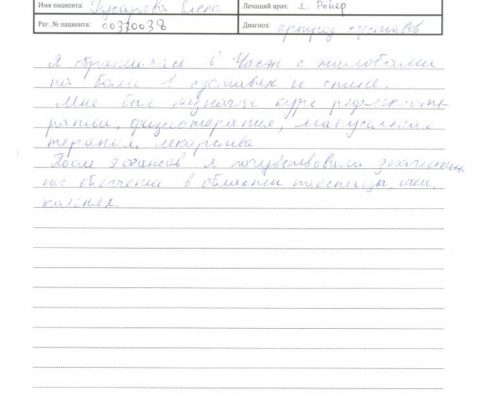 Имя пациента: Елена Лечащий врач: 1. Ройер
Рег. № пациента: Диагноз: артроз суставов
Я обратилась в Часж с жалобами
на боли в суставах и спине.
Мне был назначен курс рефлексоте-
рапии, физиотерапия, мануальная
терапия, лекарства.
После 9 сеансов я почувствовала значитель-
ное облегчение в области поясницы, шеи,
коленях.